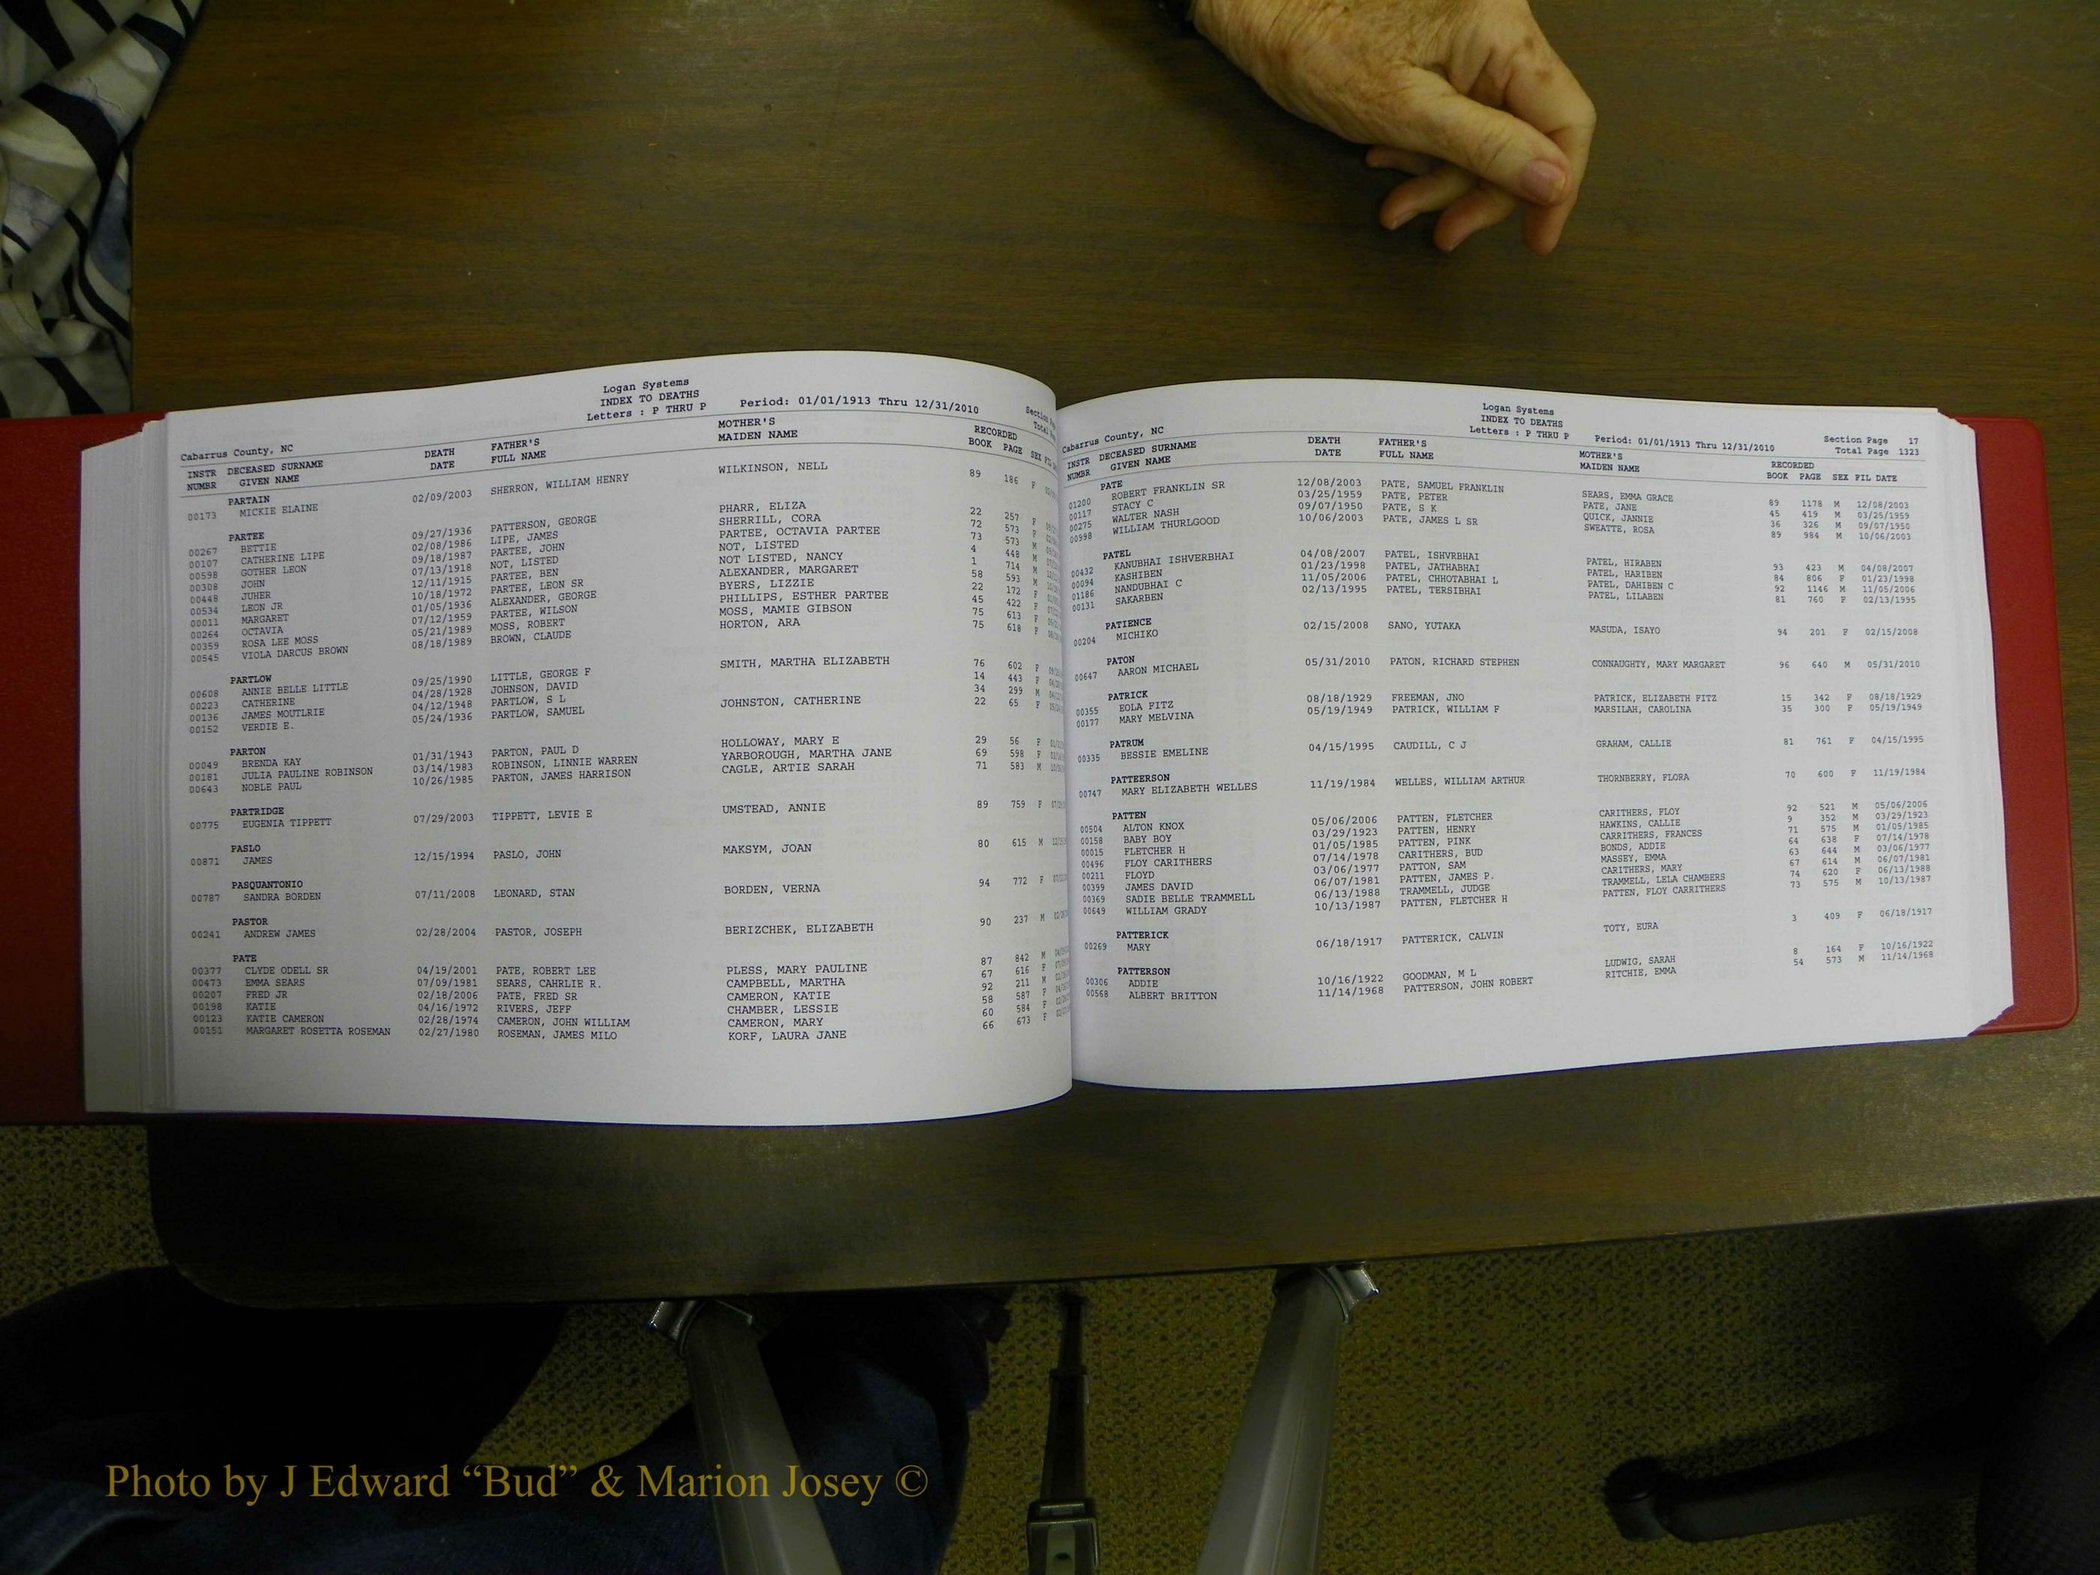 Logan Systems
INDEX TO DEATHS
Letters : P THRU P Period: 01/01/1913 Thru 12/31/2010
Cabarrus County, NC
INSTR DECEASED SURNAME DEATH FATHER'S MOTHER'S RECORDED
NUMBR GIVEN NAME DATE FULL NAME MAIDEN NAME BOOK PAGE SEX
PARTAIN
00173 MICKIE ELAINE 02/09/2003 SHERRON, WILLIAM HENRY WILKINSON, NELL 89 186 F
PARTEE
00267 BETTIE 09/27/1936 PATTERSON, GEORGE PHARR, ELIZA 22 257 F
00107 CATHERINE LIPE 02/08/1986 LIPE, JAMES SHERRILL, CORA 72 573 F
00598 GOTHER LEON 09/18/1987 PARTEE, JOHN PARTEE, OCTAVIA PARTEE 73 573 M
00308 JOHN 07/13/1918 NOT, LISTED NOT, LISTED 4 448 M
00448 JUHER 12/11/1915 PARTEE, BEN NOT LISTED, NANCY 1 714 M
00534 LEON JR 10/18/1972 PARTEE, LEON SR ALEXANDER, MARGARET 58 593 M
00011 MARGARET 01/05/1936 ALEXANDER, GEORGE BYERS, LIZZIE 22 172 F
00264 OCTAVIA 07/12/1959 PARTEE, WILSON PHILLIPS, ESTHER PARTEE 45 422 F
00359 ROSA LEE MOSS 05/21/1989 MOSS, ROBERT MOSS, MAMIE GIBSON 75 613 F
00545 VIOLA DARCUS BROWN 08/18/1989 BROWN, CLAUDE HORTON, ARA 75 618 F
PARTLOW
00608 ANNIE BELLE LITTLE 09/25/1990 LITTLE, GEORGE F SMITH, MARTHA ELIZABETH 76 602 F
00223 CATHERINE 04/28/1928 JOHNSON, DAVID 14 443 F
00136 JAMES MOUTLRIE 04/12/1948 PARTLOW, S L 34 299 M
00152 VERDIE E. 05/24/1936 PARTLOW, SAMUEL JOHNSTON, CATHERINE 22 65 F
PARTON
00049 BRENDA KAY 01/31/1943 PARTON, PAUL D HOLLOWAY, MARY E 29 56 F
00181 JULIA PAULINE ROBINSON 03/14/1983 ROBINSON, LINNIE WARREN YARBOROUGH, MARTHA JANE 69 598 F
00643 NOBLE PAUL 10/26/1985 PARTON, JAMES HARRISON CAGLE, ARTIE SARAH 71 583 M
PARTRIDGE
00775 EUGENIA TIPPETT 07/29/2003 TIPPETT, LEVIE E UMSTEAD, ANNIE 89 759 F
PASLO
00871 JAMES 12/15/1994 PASLO, JOHN MAKSYM, JOAN 80 615 M
PASQUANTONIO
00787 SANDRA BORDEN 07/11/2008 LEONARD, STAN BORDEN, VERNA 94 772 F
PASTOR
00241 ANDREW JAMES 02/28/2004 PASTOR, JOSEPH BERIZCHEK, ELIZABETH 90 237 M
PATE
00377 CLYDE ODELL SR 04/19/2001 PATE, ROBERT LEE PLESS, MARY PAULINE 87 842 M
00473 EMMA SEARS 07/09/1981 SEARS, CAHRLIE R. CAMPBELL, MARTHA 67 616 F
00207 FRED JR 02/18/2006 PATE, FRED SR CAMERON, KATIE 92 211 M
00198 KATIE 04/16/1972 RIVERS, JEFF CHAMBER, LESSIE 58 587 F
00123 KATIE CAMERON 02/28/1974 CAMERON, JOHN WILLIAM CAMERON, MARY 60 584 F
00151 MARGARET ROSETTA ROSEMAN 02/27/1980 ROSEMAN, JAMES MILO KORF, LAURA JANE 66 673 F
Logan Systems
INDEX TO DEATHS
Letters : P THRU P Period: 01/01/1913 Thru 12/31/2010
Section Page 17
Total Page 1323
Cabarrus County, NC
INSTR DECEASED SURNAME DEATH FATHER'S MOTHER'S RECORDED
NUMBR GIVEN NAME DATE FULL NAME MAIDEN NAME BOOK PAGE SEX FIL DATE
PATE
01200 ROBERT FRANKLIN SR 12/08/2003 PATE, SAMUEL FRANKLIN SEARS, EMMA GRACE 89 1178 M 12/08/2003
00117 STACY C 03/25/1959 PATE, PETER PATE, JANE 45 419 M 03/25/1959
00275 WALTER NASH 09/07/1950 PATE, S K QUICK, JANNIE 36 326 M 09/07/1950
00998 WILLIAM THURLGOOD 10/06/2003 PATE, JAMES L SR SWEATTE, ROSA 89 984 M 10/06/2003
PATEL
00432 KANUBHAI ISHVERBHAI 04/08/2007 PATEL, ISHVRBHAI PATEL, HIRABEN 93 423 M 04/08/2007
00094 KASHIBEN 01/23/1998 PATEL, JATHABHAI PATEL, HARIBEN 84 806 F 01/23/1998
01186 NANDUBHAI C 11/05/2006 PATEL, CHHOTABHAI L PATEL, DAHIBEN C 92 1146 M 11/05/2006
00131 SAKARBEN 02/13/1995 PATEL, TERSIBHAI PATEL, LILABEN 81 760 F 02/13/1995
PATIENCE
00204 MICHIKO 02/15/2008 SANO, YUTAKA MASUDA, ISAYO 94 201 F 02/15/2008
PATON
00647 AARON MICHAEL 05/31/2010 PATON, RICHARD STEPHEN CONNAUGHTY, MARY MARGARET 96 640 M 05/31/2010
PATRICK
00355 EOLA FITZ 08/18/1929 FREEMAN, JNO PATRICK, ELIZABETH FITZ 15 342 F 08/18/1929
00177 MARY MELVINA 05/19/1949 PATRICK, WILLIAM F MARSILAH, CAROLINA 35 300 F 05/19/1949
PATRUM
00335 BESSIE EMELINE 04/15/1995 CAUDILL, C J GRAHAM, CALLIE 81 761 F 04/15/1995
PATTEERSON
00747 MARY ELIZABETH WELLES 11/19/1984 WELLES, WILLIAM ARTHUR THORNBERRY, FLORA 70 600 F 11/19/1984
PATTEN
00504 ALTON KNOX 05/06/2006 PATTEN, FLETCHER CARITHERS, FLOY 92 521 M 05/06/2006
00158 BABY BOY 03/29/1923 PATTEN, HENRY HAWKINS, CALLIE 9 352 M 03/29/1923
00015 FLETCHER H 01/05/1985 PATTEN, PINK CARRITHERS, FRANCES 71 575 M 01/05/1985
00496 FLOY CARITHERS 07/14/1978 CARITHERS, BUD BONDS, ADDIE 64 638 F 07/14/1978
00211 FLOYD 03/06/1977 PATTON, SAM MASSEY, EMMA 63 644 M 03/06/1977
00399 JAMES DAVID 06/07/1981 PATTEN, JAMES P. CARITHERS, MARY 67 614 M 06/07/1981
00369 SADIE BELLE TRAMMELL 06/13/1988 TRAMMELL, JUDGE TRAMMELL, LELA CHAMBERS 74 620 F 06/13/1988
00649 WILLIAM GRADY 10/13/1987 PATTEN, FLETCHER H PATTEN, FLOY CARRITHERS 73 575 M 10/13/1987
PATTERICK
00269 MARY 06/18/1917 PATTERICK, CALVIN TOTY, EURA 3 409 F 06/18/1917
PATTERSON
00306 ADDIE 10/16/1922 GOODMAN, M L LUDWIG, SARAH 8 164 F 10/16/1922
00568 ALBERT BRITTON 11/14/1968 PATTERSON, JOHN ROBERT RITCHIE, EMMA 54 573 M 11/14/1968
Photo by J Edward “Bud” & Marion Josey ©